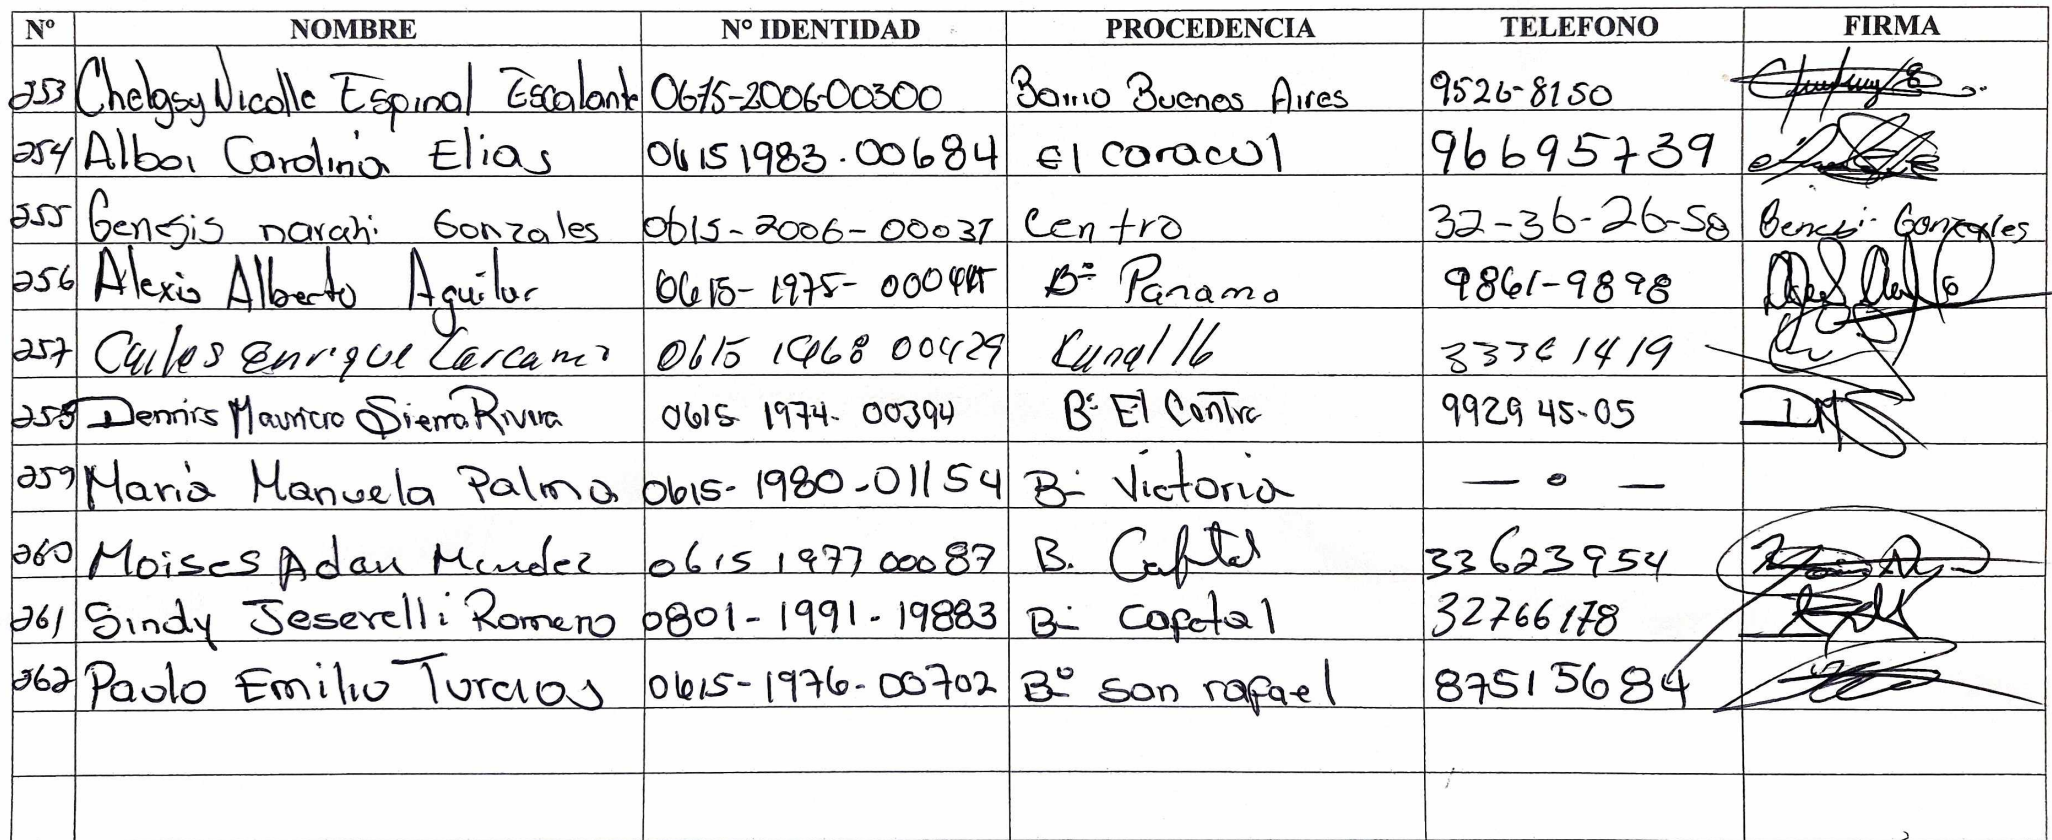 Nº NOMBRE Nº IDENTIDAD PROCEDENCIA TELEFONO FIRMA
253 Chelgsy Nicolle Espinal Escalante 0615-2006-00300 Barrio Buenos Aires 9526-8150
254 Alba Carolina Elias 0615 1983.00684 El caracol 96695739
255 Genesis narahi Gonzales 0615-2006-00037 Centro 32-36-26-50 Genesi Gonzales
256 Alexis Alberto Aguilar 0615-1975- Bº Panama 9861-9898
257 Carlos Enrique Carcamo 0615 1968 00429 1419
258 Dennis Mauricio Sierra Rivera 0615 1974-00394 Bº El Centro 9929 45-05
259 Maria Manuela Palma 0615-1980-01154 Bº Victoria — o —
260 Moises Adan Mendez 0615 1977 00087 B. Capital 33623954
261 Sindy Jeserelli Romero 0801-1991-19883 Bº Capotal 32766178
262 Paulo Emilio Turcios 0615-1976-00702 Bº san rafael 87515684